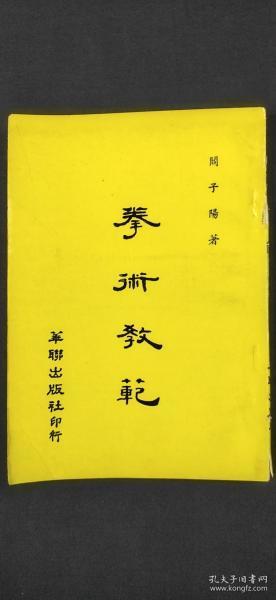 閻子陽著
拳術教範
華聯出版社印行
孔夫子旧书网
www.kongfz.com